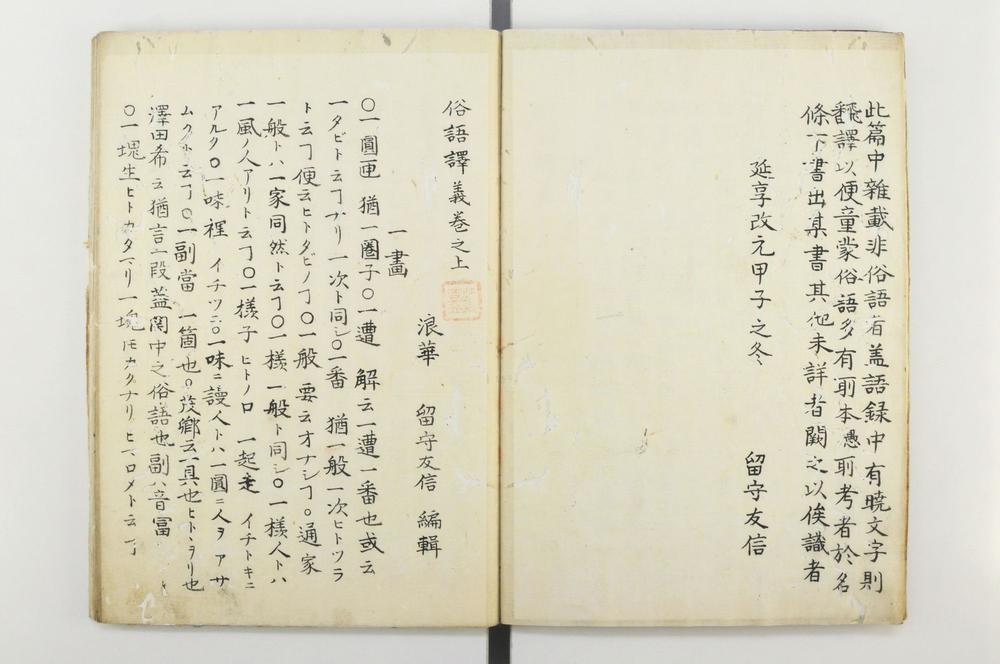 此篇中雜載非俗語者蓋語録中有曉文字則
翻譯以便童蒙俗語多有所本愚所考者於名
條下書出某書其他未詳者闕之以俟識者
延享改元甲子之冬
留守友信
俗語譯義巻之上
浪華 留守友信 編輯
一畫
〇一圓匝 猶一圏子〇一遭 解云一遭一番也或云
一タビト云ヿナリ一次ト同シ〇一番 猶一般一次ヒトツラ
ト云ヿ便云ヒトタビノヿ〇一般 要云オナシヿ。通家
一般トハ一家同然ト云ヿ〇一樣 一般ト同シ〇一樣人トハ
一風ノ人アリト云ヿ〇一樣子 ヒトノロ 一起走 イチトキニ
アルク〇一味裡 イチツニ〇一味ニ謾人トハ一圓ニ人ヲアサ
ムクト云ヿ〇一副當 一箇也。茂卿云一具也ヒトソヲリ也
澤田希云猶言一段蓋閩中之俗語也副ハ音冨
〇一塊生ヒトカタマリ一塊ﾓカクナリヒマロメト云ヿ